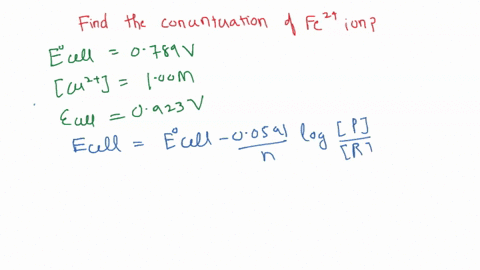 Find the concuntuation of Fe²⁺ ion?
E°cell = 0.789V
[Cu²⁺] = 1.00M
Ecell = 0.923V
Ecell = E°cell - 0.0591/n log [P]/[R]